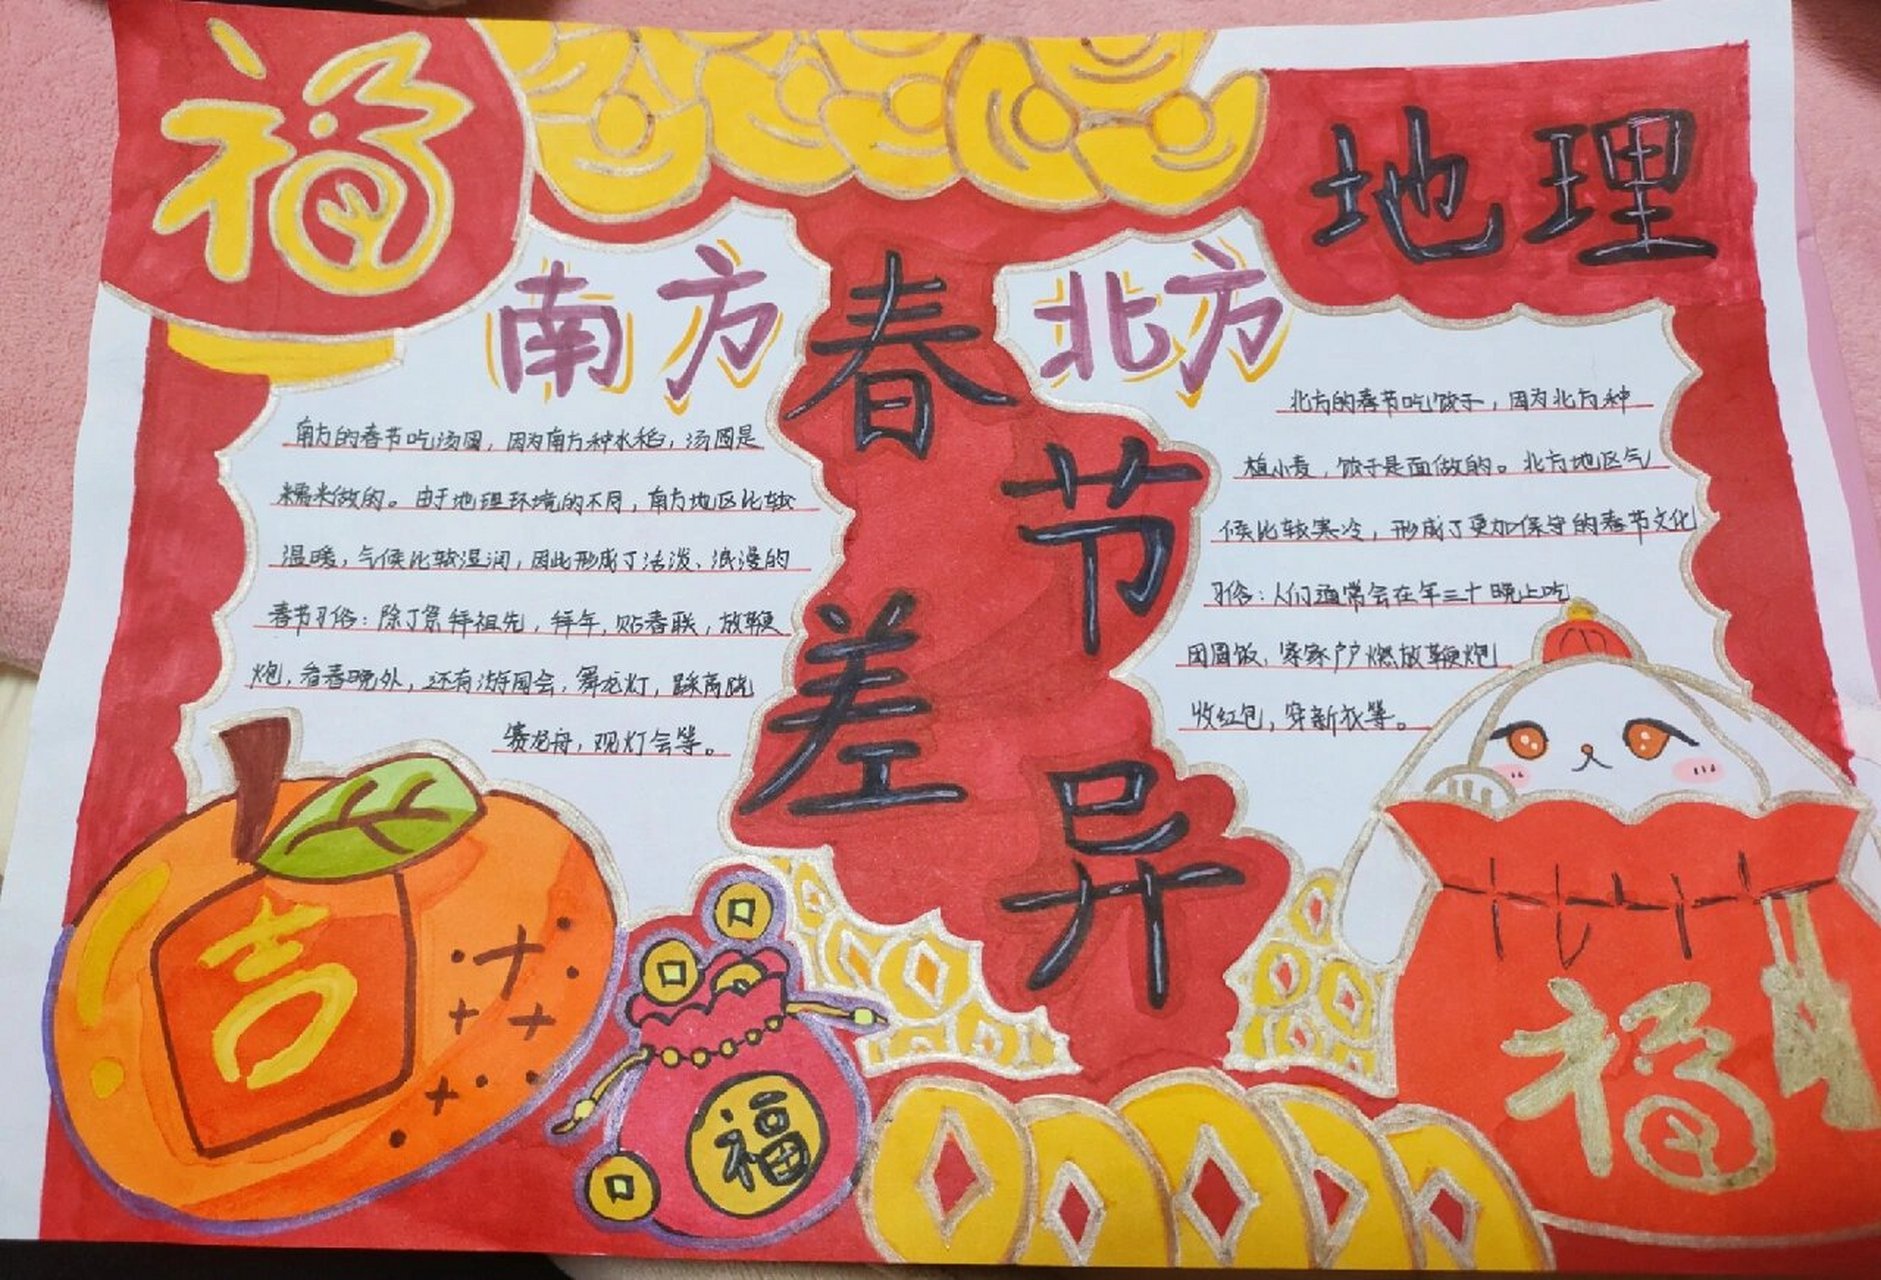 福
地理
春节差异
南方
南方的春节吃汤圆，因为南方种水稻，汤圆是
糯米做的。由于地理环境的不同，南方地区比较
温暖，气候比较湿润，因此形成了活泼、浪漫的
春节习俗：除了祭拜祖先，拜年，贴春联，放鞭
炮，看春晚外，还有游园会，舞龙灯，踩高跷
赛龙舟，观灯会等。
北方
北方的春节吃饺子，因为北方种
植小麦，饺子是面做的。北方地区气
候比较寒冷，形成了更加保守的春节文化
习俗：人们通常会在年三十晚上吃
团圆饭，家家户户燃放鞭炮
收红包，穿新衣等。
吉
福
福